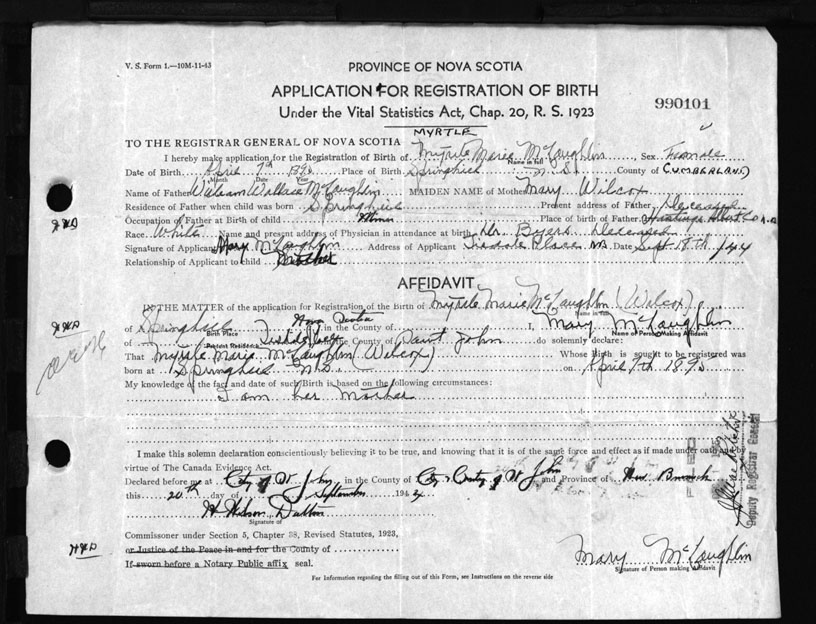 V. S. Form 1.—10M-11-43
PROVINCE OF NOVA SCOTIA
APPLICATION FOR REGISTRATION OF BIRTH
Under the Vital Statistics Act, Chap. 20, R. S. 1923
990101
MYRTLE
TO THE REGISTRAR GENERAL OF NOVA SCOTIA
I hereby make application for the Registration of Birth of Myrtle Marie McLaughlin Sex Female
Name in full
Date of Birth April 7th Place of Birth Springhill N.S. County of CUMBERLAND
Month Date Year
Name of Father William Wallace McLaughlin MAIDEN NAME of Mother Mary Wilcox
Residence of Father when child was born Springhill Present address of Father Deceased
Occupation of Father at Birth of child Miner Place of Birth of Father
Race White Name and present address of Physician in attendance at birth Dr. Byers Deceased
Signature of Applicant Mary McLaughlin Address of Applicant Tisdale Place Date Sept 18th /44
Relationship of Applicant to child Mother
AFFIDAVIT
IN THE MATTER of the application for Registration of the Birth of Myrtle Marie McLaughlin (Wilcox)
Name in full
of Springhill Nova Scotia in the County of I, Mary McLaughlin
Birth Place Name of Person Making Affidavit
of Tisdale Place of the County of Saint John do solemnly declare:
Present Residence
That Myrtle Marie McLaughlin (Wilcox) Whose Birth is sought to be registered was
born at Springhill N.S. on April 7th 1895
My knowledge of the fact and date of such Birth is based on the following circumstances:
I am her Mother
I make this solemn declaration conscientiously believing it to be true, and knowing that it is of the same force and effect as if made under oath and by
virtue of The Canada Evidence Act.
Declared before me at City of St. John, in the County of City & County of St John and Province of New Brunswick
this 20th day of September 1944
H Wilson Dalton
Signature of
Commissioner under Section 5, Chapter 38, Revised Statutes, 1923,
or Justice of the Peace in and for the County of
If sworn before a Notary Public affix seal.
Mary McLaughlin
Signature of Person making Affidavit
For Information regarding the filling out of this Form, see Instructions on the reverse side
Deputy Registrar General